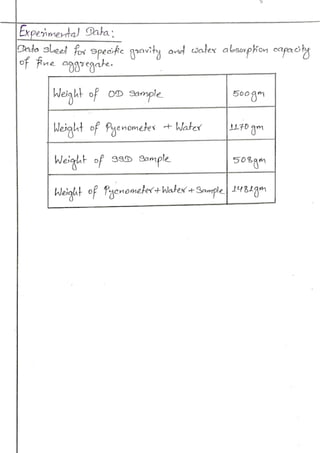 Experimental Data:
Data sheet for specific gravity and water absorption capacity
of fine aggregate.
Weight of OD Sample 500gm
Weight of Pycnometer + Water 1170 gm
Weight of SSD Sample 508gm
Weight of Pycnometer + Water + Sample 1481gm